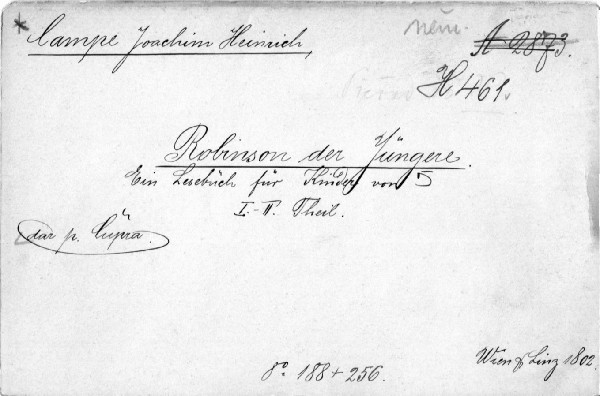 * Campe Joachim Heinrich,
A 2873.
H 461.
Robinson der Jüngere.
Ein Lesebuch für Kinder von 5
I.-II. Theil.
dar p. Cupra.
8°. 188 + 256.
Wien & Linz 1802.